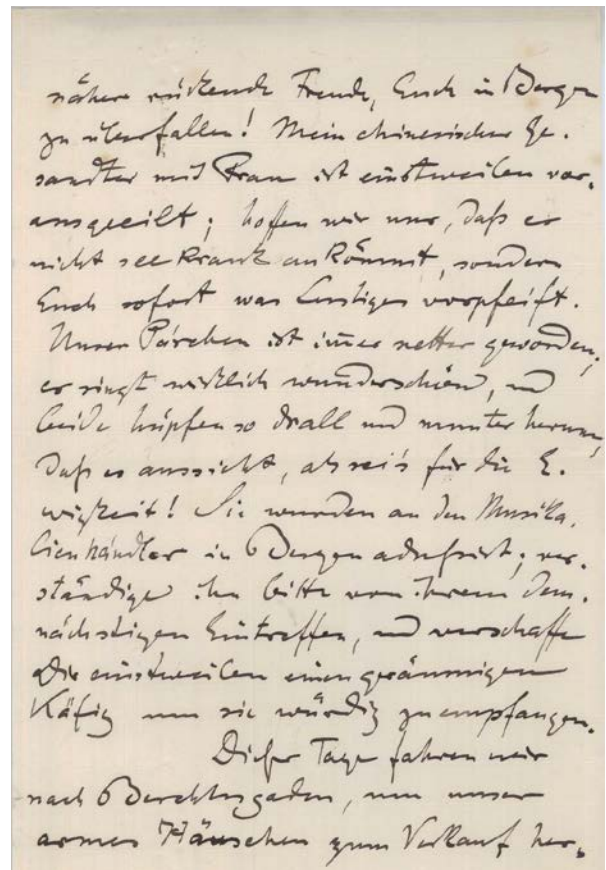 nähere rückende Freude, Euch in Bergen
zu überfallen! Mein chinesischer Ge.
sandter mit Frau ist einstweilen vor.
ausgeeilt; hoffen wir nur, daß er
nicht seekrank ankömmt, sondern
Euch sofort was Lustiges vorpfeift.
Unser Pärchen ist im̅er netter geworden;
er singt wirklich wunderschön, und
beide hüpfen so drall und munter herum,
daß es aussieht, als sei's für die E.
wigkeit! Sie wurden an den Musika.
lienhändler in Bergen adressirt; ver.
ständige ihn bitte von ihrem dem.
nächstigen Eintreffen, und verschaffe
Dir einstweilen einen geräumigen
Käfig um sie würdig zu empfangen.
Dieser Tage fahren wir
nach Berchtesgaden, um unser
armes Häuschen zum Verkauf her.